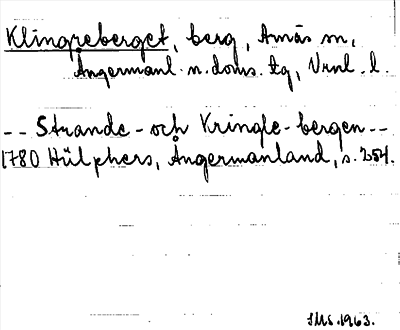 Klingreberget, berg, Arnäs sn,
Ångermanl. n. doms. tg, Vrnl. l.
-- Strande- och Kringle-bergen --
1780 Hülphers, Ångermanland, s. 254.
IMS. 1963.